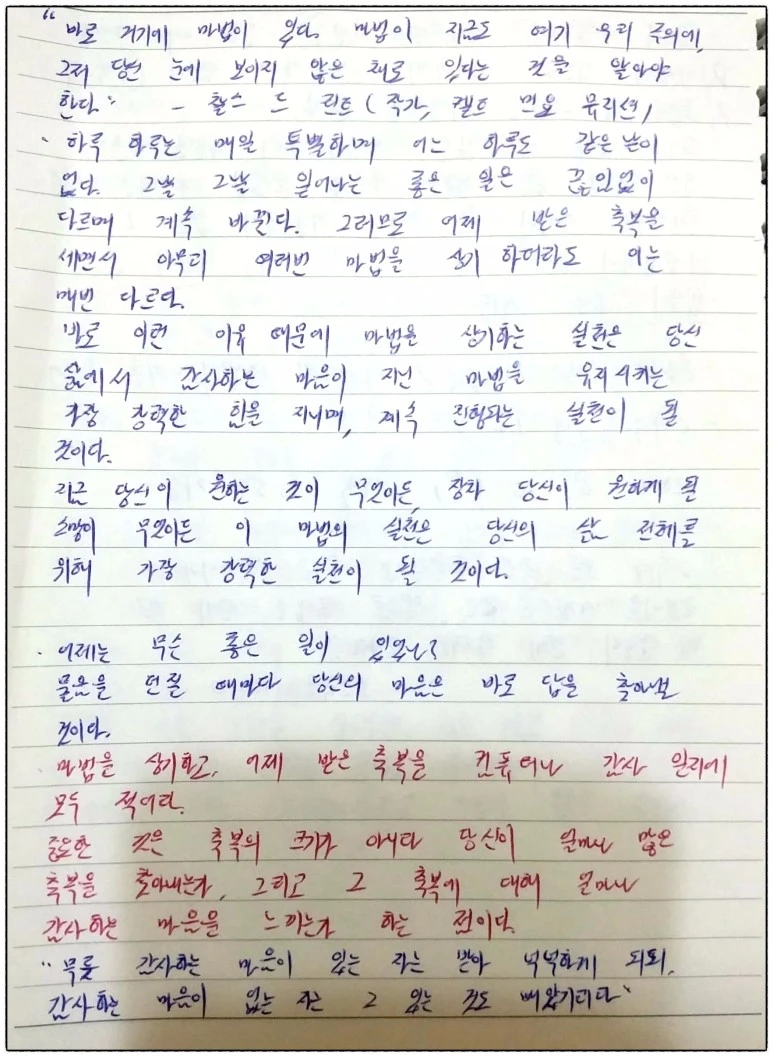 “ 바로 거기에 마법이 있다. 마법이 지금도 여기 우리 주위에,
그저 당신 눈에 보이지 않은 채로 있다는 것을 알아야
한다." - 찰스 드 린트 ( 작가, 켈트 민요 뮤지션)
· 하루 하루는 매일 특별하며 어느 하루도 같은 날이
없다. 그날 그날 일어나는 좋은 일은 끊임없이
다르며 계속 바뀐다. 그러므로 어제 받은 축복을
세면서 아무리 여러번 마법을 상기 하더라도 이는
매번 다르다.
바로 이런 이유 때문에 마법을 상기하는 실천은 당신
삶에서 감사하는 마음이 지닌 마법을 유지시키는
가장 강력한 힘을 지니며, 계속 진행되는 실천이 될
것이다.
지금 당신이 원하는 것이 무엇이든, 장차 당신이 원하게 될
소망이 무엇이든 이 마법의 실천은 당신의 삶 전체를
위해 가장 강력한 실천이 될 것이다.
· 어제는 무슨 좋은 일이 있었나?
물음을 던질 때마다 당신의 마음은 바로 답을 찾아낼
것이다.
· 마법을 상기하고, 어제 받은 축복을 컴퓨터나 감사 일지에
모두 적어라.
중요한 것은 축복의 크기가 아니라 당신이 얼마나 많은
축복을 찾아내는가, 그리고 그 축복에 대해 얼마나
감사하는 마음을 느끼는가 하는 점이다.
“ 무릇 감사하는 마음이 있는 자는 받아 넉넉하게 되되,
감사하는 마음이 없는 자는 그 있는 것도 빼앗기리라"